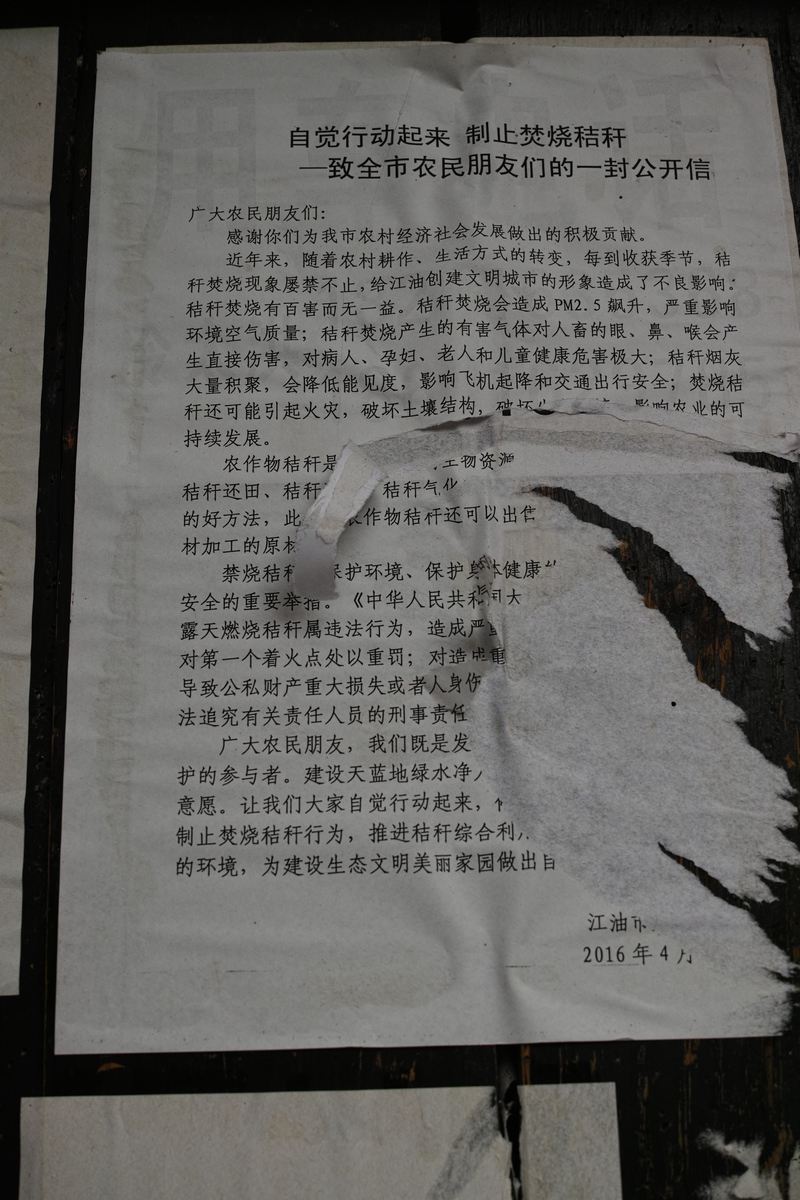 自觉行动起来 制止焚烧秸秆
—致全市农民朋友们的一封公开信
广大农民朋友们：
感谢你们为我市农村经济社会发展做出的积极贡献。
近年来，随着农村耕作、生活方式的转变，每到收获季节，秸
秆焚烧现象屡禁不止，给江油创建文明城市的形象造成了不良影响。
秸秆焚烧有百害而无一益。秸秆焚烧会造成 PM2.5 飙升，严重影响
环境空气质量；秸秆焚烧产生的有害气体对人畜的眼、鼻、喉会产
生直接伤害，对病人、孕妇、老人和儿童健康危害极大；秸秆烟灰
大量积聚，会降低能见度，影响飞机起降和交通出行安全；焚烧秸
秆还可能引起火灾，破坏土壤结构，破坏 影响农业的可
持续发展。
农作物秸秆是 物资源
秸秆还田、秸秆 秸秆气化
的好方法，此 农作物秸秆还可以出售
材加工的原材
禁烧秸秆 保护环境、保护身体健康
安全的重要举措。《中华人民共和国大
露天燃烧秸秆属违法行为，造成严重
对第一个着火点处以重罚；对造成重
导致公私财产重大损失或者人身伤
法追究有关责任人员的刑事责任
广大农民朋友，我们既是发
护的参与者。建设天蓝地绿水净
意愿。让我们大家自觉行动起来，
制止焚烧秸秆行为，推进秸秆综合利
的环境，为建设生态文明美丽家园做出自
江油市
2016 年 4 月